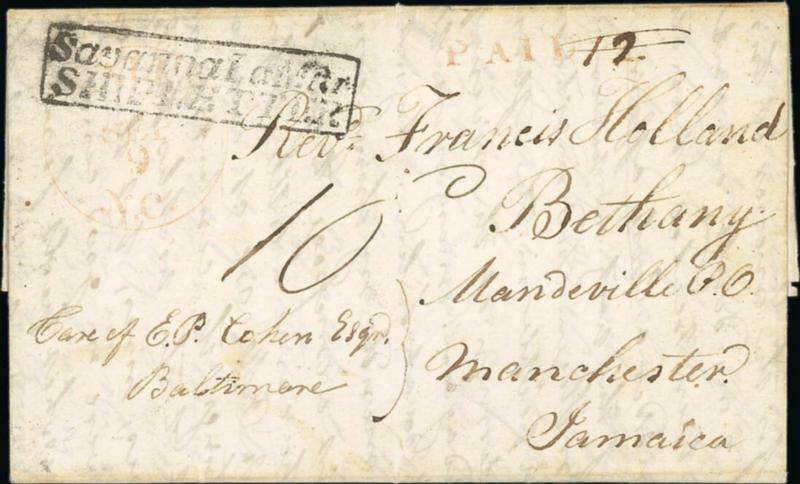 Savanna La Mar
SHIP LETTER
PAID 12
9
N.C.
Revd. Francis Holland
Bethany
Mandeville P.O.
Manchester
Jamaica
10
Care of E.P. Cohen Esqr.
Baltimore